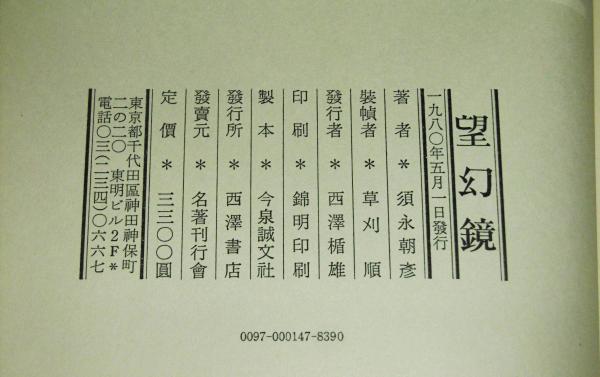 望幻鏡
一九八〇年五月一日發行
著者＊須永朝彥
裝幀者＊草刈順
發行者＊西澤楯雄
印刷＊錦明印刷
製本＊今泉誠文社
發行所＊西澤書店
發賣元＊名著刊行會
定價＊三三〇〇圓
東京都千代田區神田神保町
二の二〇 東明ビル2F＊
電話〇三(二三四)〇六六七
0097-000147-8390